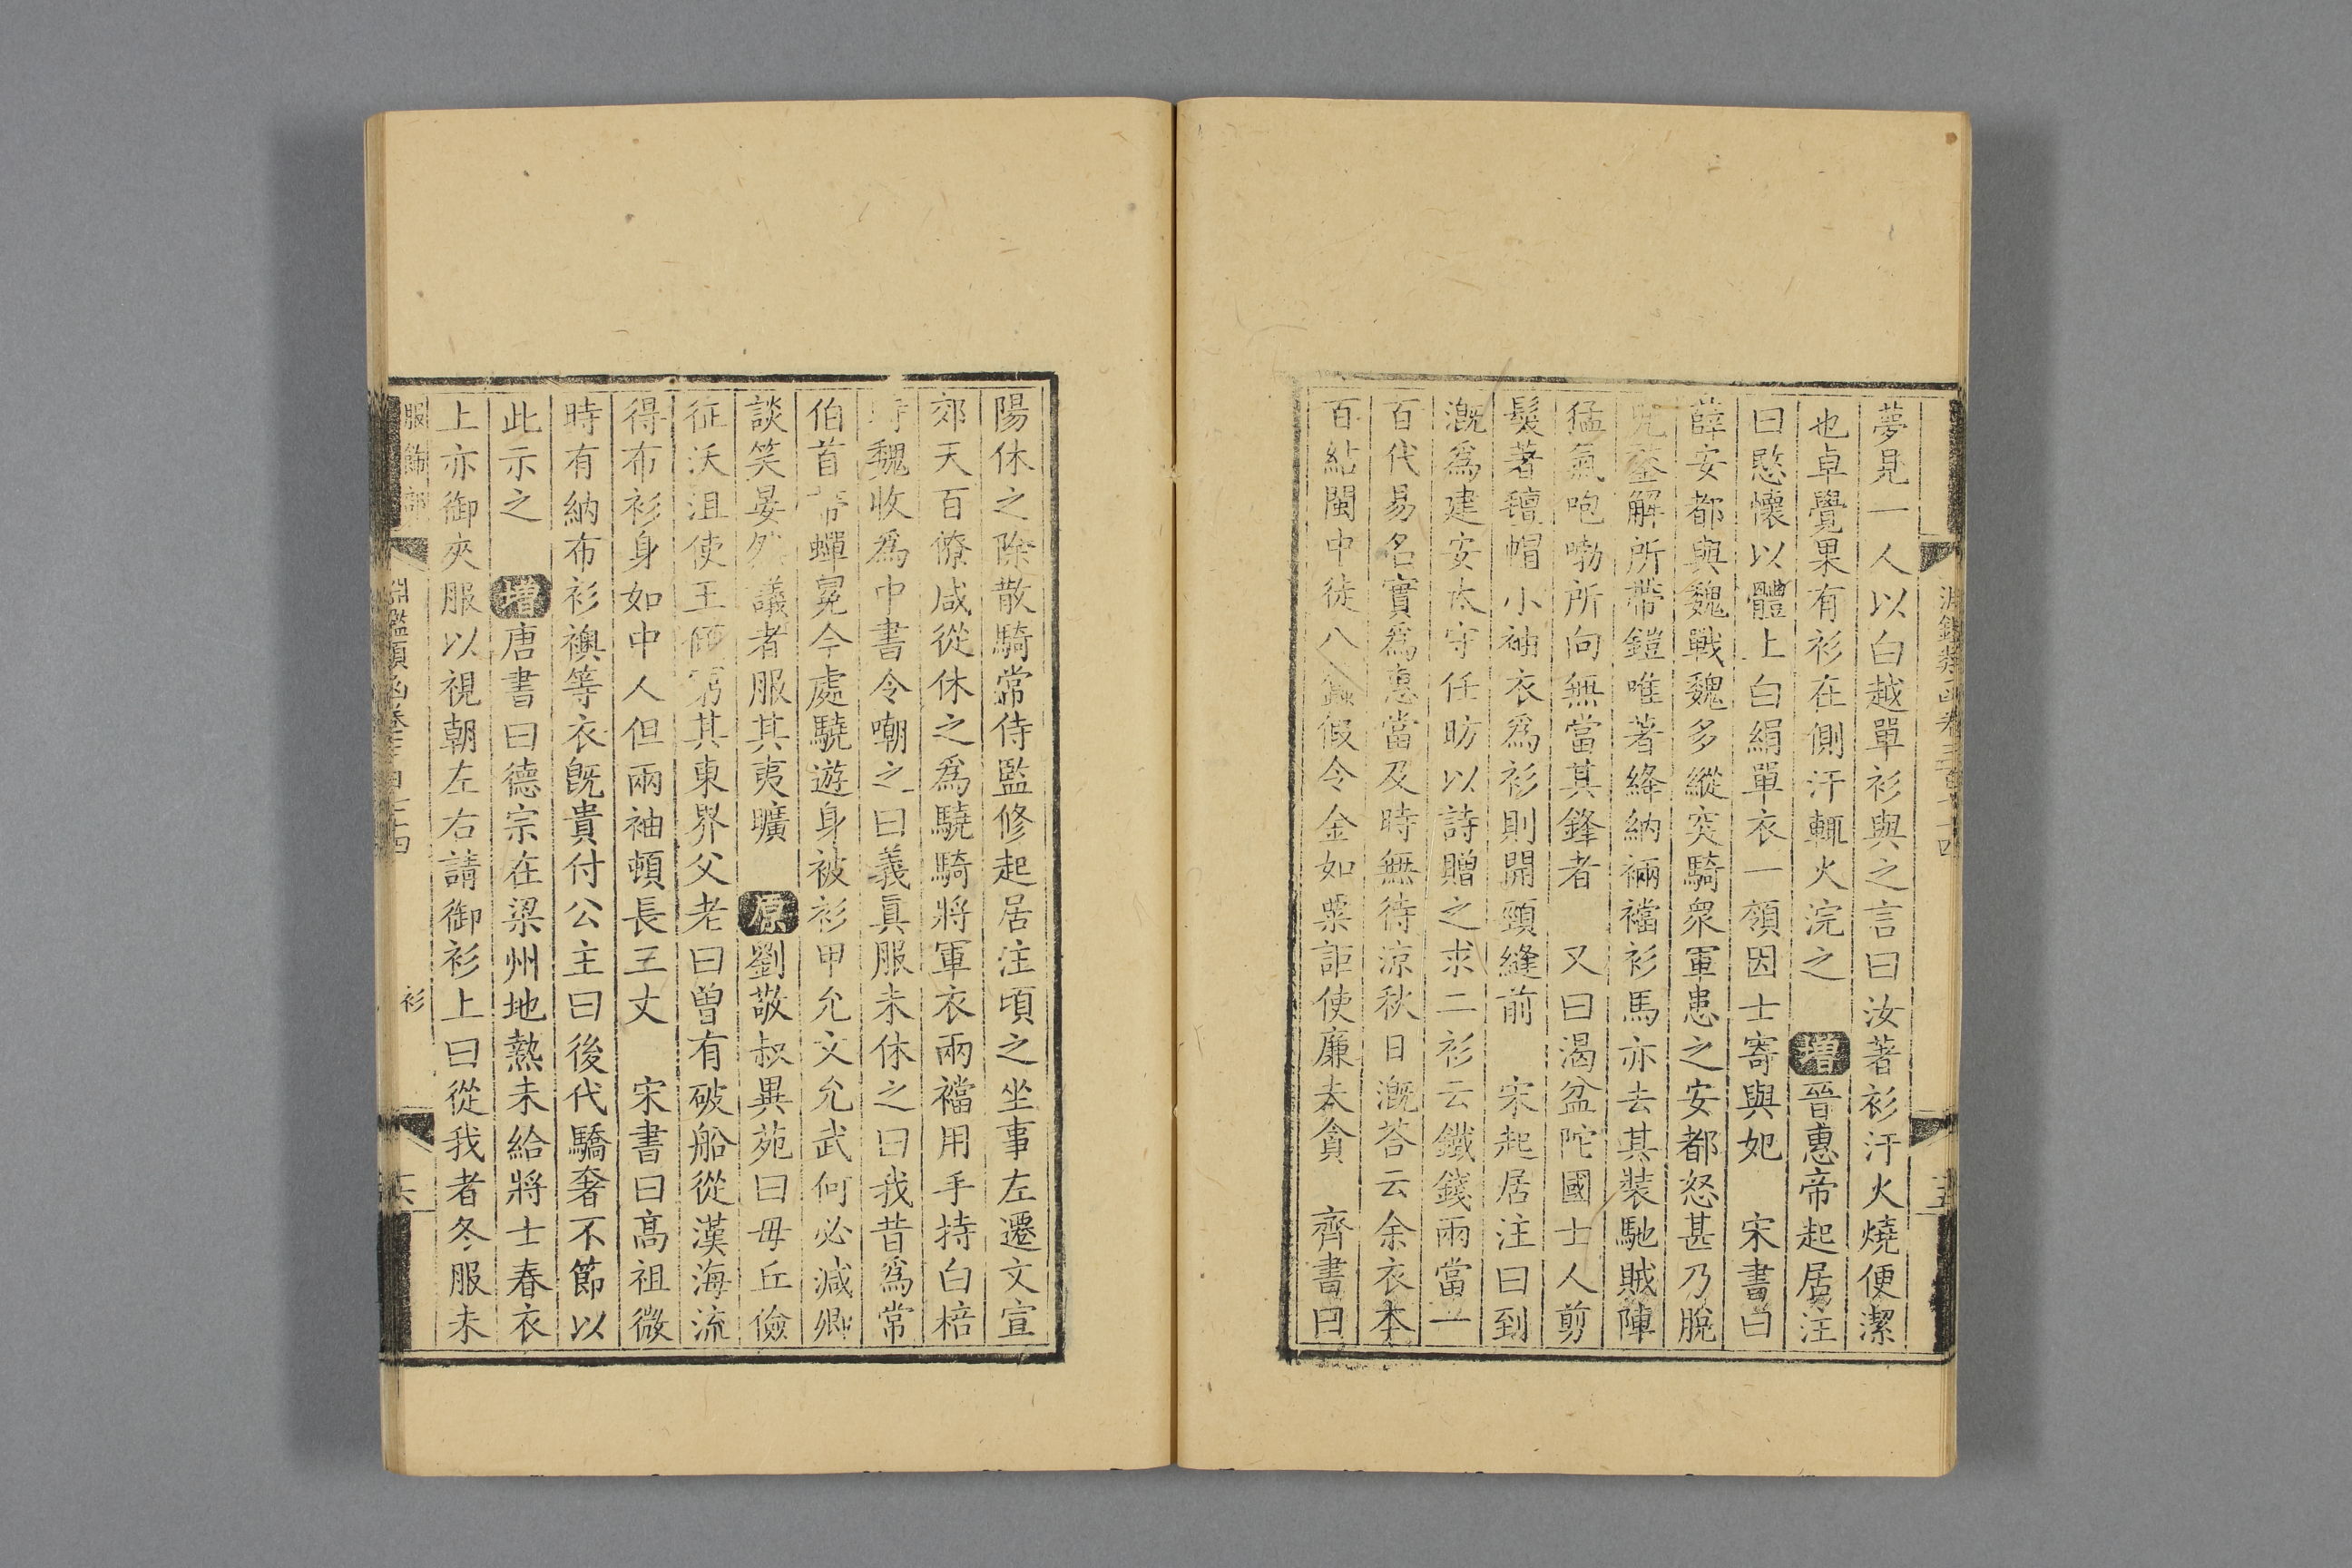 夢見一人以白越單衫與之言曰汝著衫汗火燒便潔
也卓覺果有衫在側汗輒火浣之 增晉惠帝起居注
曰愍懷以體上白絹單衣一領因士寄與妃 宋書曰
薛安都與魏戰魏多縱突騎衆軍患之安都怒甚乃脫
兜鍪解所帶鎧唯著絳納裲襠衫馬亦去其裝馳賊陣
猛氣咆勃所向無當其鋒者 又曰渴盆陀國士人剪
髮著氊帽小袖衣爲衫則開頸縫前 宋起居注曰到
漑爲建安太守任昉以詩贈之求二衫云鐵錢兩當一
百代易名實爲惠當及時無待涼秋日漑荅云余衣本
百結閩中徒八蠶假令金如粟詎使廉夫貪 齊書曰
陽休之除散騎常侍監修起居注頃之坐事左遷文宣
郊天百僚咸從休之爲驍騎將軍衣兩襠用手持白棓
時魏收爲中書令嘲之曰義眞服未休之曰我昔爲常
伯首帶蟬冕今處驍遊身被衫甲允文允武何必減卿
談笑晏然議者服其夷曠 原劉敬叔異苑曰毋丘儉
征沃沮使王頎窮其東界父老曰曾有破船從漢海流
得布衫身如中人但兩袖頓長三丈 宋書曰高祖微
時有納布衫襖等衣旣貴付公主曰後代驕奢不節以
此示之 增唐書曰德宗在梁州地熱未給將士春衣
上亦御夾服以視朝左右請御衫上曰從我者冬服未
服飾部 淵鑑類函卷三百七十四 衫 十六